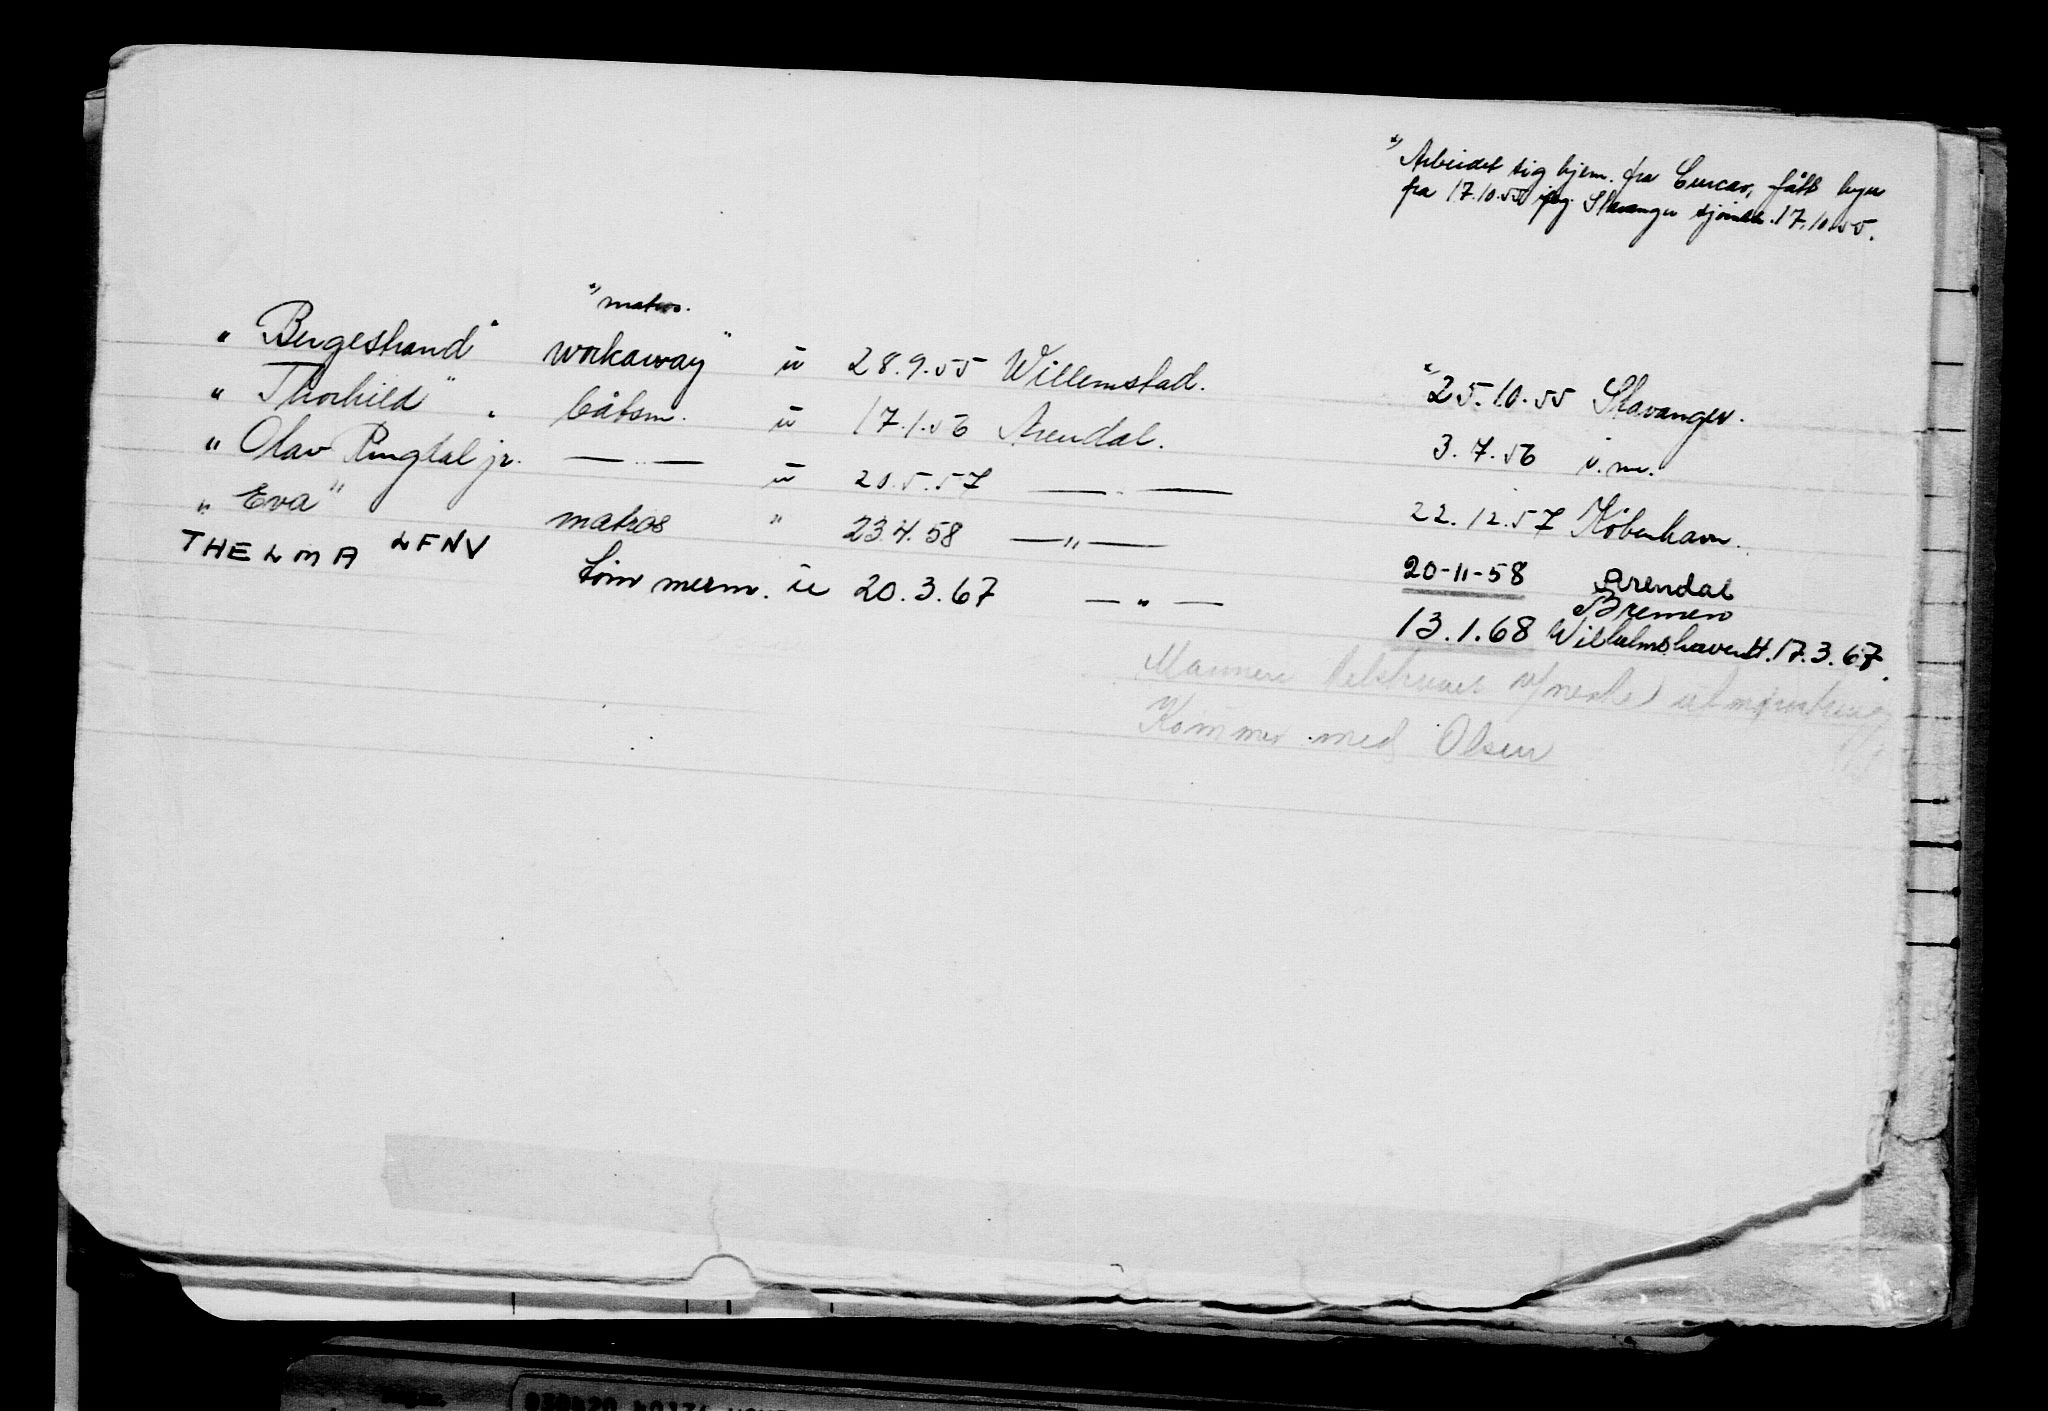 x) Arbeidet sig hjem. fra Curcao, fått hyre
fra 17.10.55 Stavanger sjømk. 17.10.55.
x) matros.
"Bergestrand" workaway" u 28.9.55 Willemstad. x) 25.10.55 Stavanger.
"Thorhild" båtsm. u 17.1.56 Arendal. 3.7.56 i.m.
"Olav Ringdal jr. — " — u 20.5.57 — " — 22.12.57 København.
"Eva" matros " 23.4.58 — " — 20-11-58 Arendal
THELMA LFNV tömmerm. u 20.3.67 — " — 13.1.68 Bremen
Wilhelmshaven H. 17.3.67.
Mannen
Kommer med Olsen